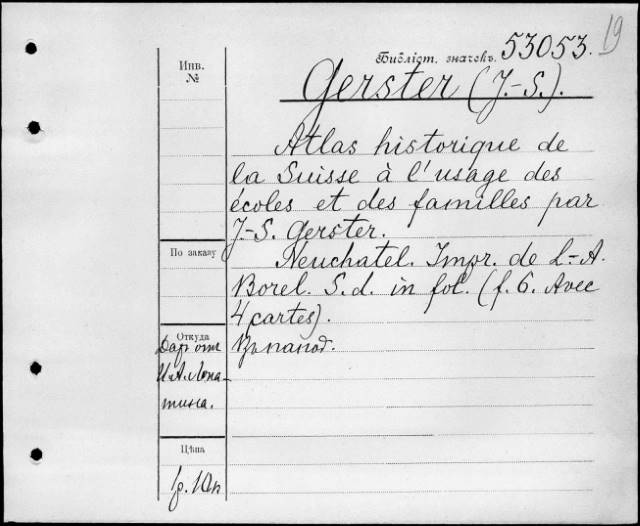 19
Библіот. значекъ 53053.
Инв.
№
Gerster (J.-S.).
Atlas historique de
la Suisse à l'usage des
écoles et des familles par
J.-S. Gerster.
По заказу
Neuchatel. Impr. de L.-A.
Borel. S.d. in fol. (f. 6. Avec
4 cartes).
Откуда
Въ папкѣ.
Даръ отъ
И.А. Лопа-
тина.
Цѣна
1р. 10к